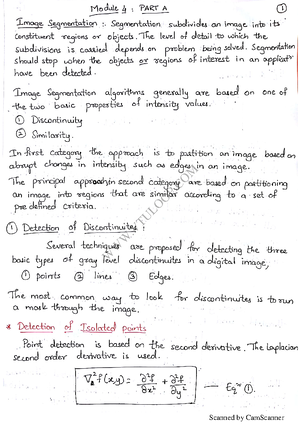 Module 4 : PART A
①
Image Segmentation :- Segmentation subdivides an image into its
constituent regions or objects. The level of detail to which the
subdivisions is carried depends on problem being solved. Segmentation
should stop when the objects or regions of interest in an applicatn
have been detected.
Image Segmentation algorithms generally are based on one of
the two basic properties of intensity values.
① Discontinuity
② Similarity.
In first category the approach is to partition an image based on
abrupt changes in intensity such as edges in an image.
The principal approach in second category are based on partitioning
an image, into regions that are similar according to a set of
pre defined criteria.
① Detection of Discontinuites :
Several techniques are proposed for detecting the three
basic types of gray level discontinuities in a digital image,
① points ② lines ③ Edges.
The most common way to look for discontinuites is to run
a mask through the image.
* Detection of Isolated points
Point detection is based on the second derivative. The Laplacian
second order derivative is used.
∇²f(x,y) = ∂²f/∂x² + ∂²f/∂y² — Eqⁿ ①.
Scanned by CamScanner